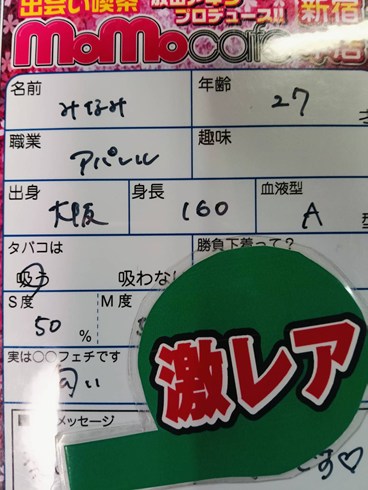 出会い喫茶
プロデュース!!
新宿
MoMocafe 本店
名前 みなみ 年齢 27 才
職業 アパレル 趣味
出身 大阪 身長 160 血液型 A 型
タバコは 勝負下着って?
吸う 吸わない
S度 50 % M度
実は○○フェチです
匂い
激レア
メッセージ
です♡